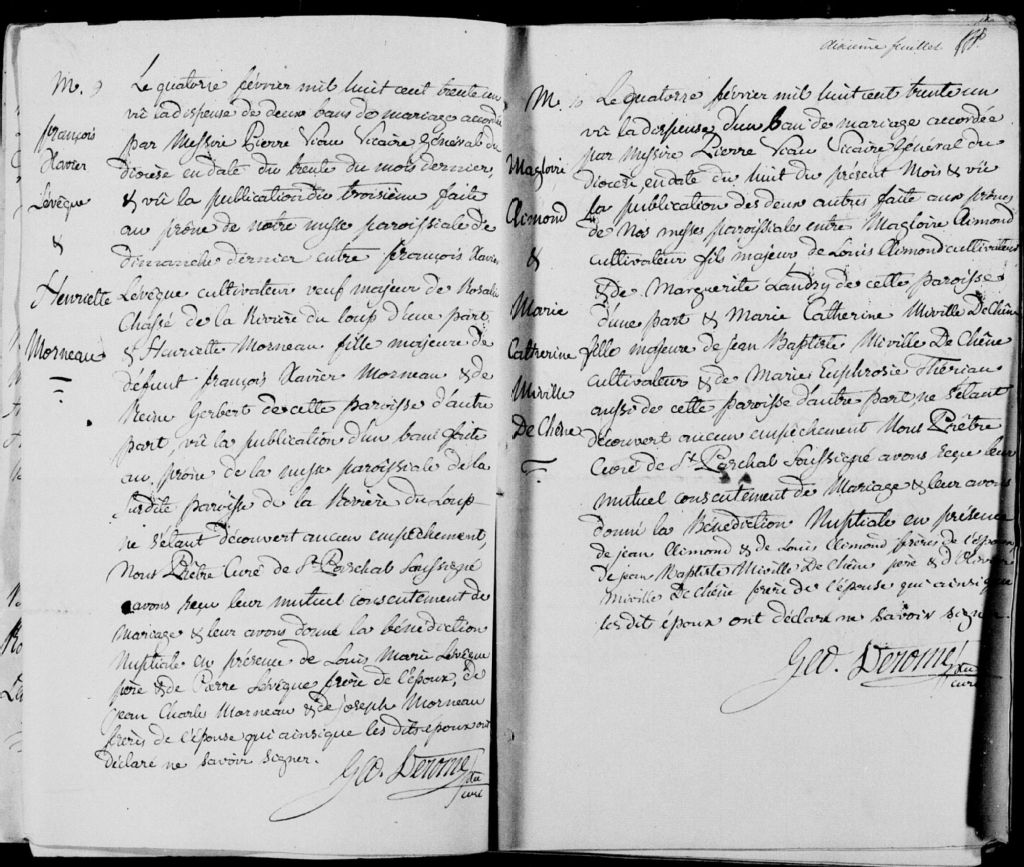 M. 9
françois
Xavier
Lévêque
&
Henriette
Morneau
Le quatorse février mil huit cent trente un
vû la dispense de deux bans de mariage accordée
par Messire Pierre Viau Vicaire Général du
diocèse en date du trente du mois dernier,
& vûe la publication du troisième faite
au prône de notre messe paroissiale de
dimanche dernier entre françois Xavier
Levêque cultivateur veuf majeur de Rosalie
Chassé de la Rivière du loup d'une part
& Henriette Morneau fille majeure de
défunt françois Xavier Morneau & de
Reine Gerbert de cette paroisse d'autre
part, vû la publication d'un ban faite
au prône de la messe paroissiale de la
susdite paroisse de la Rivière du Loup
ne s'étant découvert aucun empêchement,
Nous Prêtre Curé de St. Paschal soussigné
avons reçu leur mutuel consentement de
Mariage & leur avons donné la bénédiction
Nuptiale en présence de Louis Marie Levêque
père & de Pierre Levêque frère de l'époux, de
Jean Charle Morneau & de Joseph Morneau
frères de l'épouse qui ainsique les dits époux ont
déclaré ne savoir signer.
Ged. Derome ptre
curé
dixième feuillet
M. 10
Magloire
Climond
&
Marie
Catherine
Miville
De Chêne
Le quatorse février mil huit cent trente un
vû la dispense d'un ban de mariage accordée
par Messire Pierre Viau Vicaire Général du
diocèse, en date du huit du présent Mois & vûe
la publication des deux autres faite aux prônes
de Nos messes paroissiales entre Magloire Climond
cultivateur fils majeur de Louis Climond cultivateur
& de Marguerite Landry de cette paroisse
d'une part & Marie Catherine Miville De Chêne
fille majeure de Jean Baptiste Miville De Chêne
cultivateur & de Marie Euphrosie Thériau
aussi de cette paroisse d'autre part ne s'étant
découvert aucun empêchement Nous Prêtre
Curé de St. Paschal soussigné avons reçu leur
mutuel consentement de Mariage & leur avons
donné la Bénédiction Nuptiale en présence
de jean Climond & de Louis Climond frères de l'époux,
de jean Baptiste Miville De Chêne père & d'Olivier
Miville De Chêne frère de l'épouse qui ainsi que
les dit époux ont déclaré ne savoir signer.
Ged. Derome ptre
curé